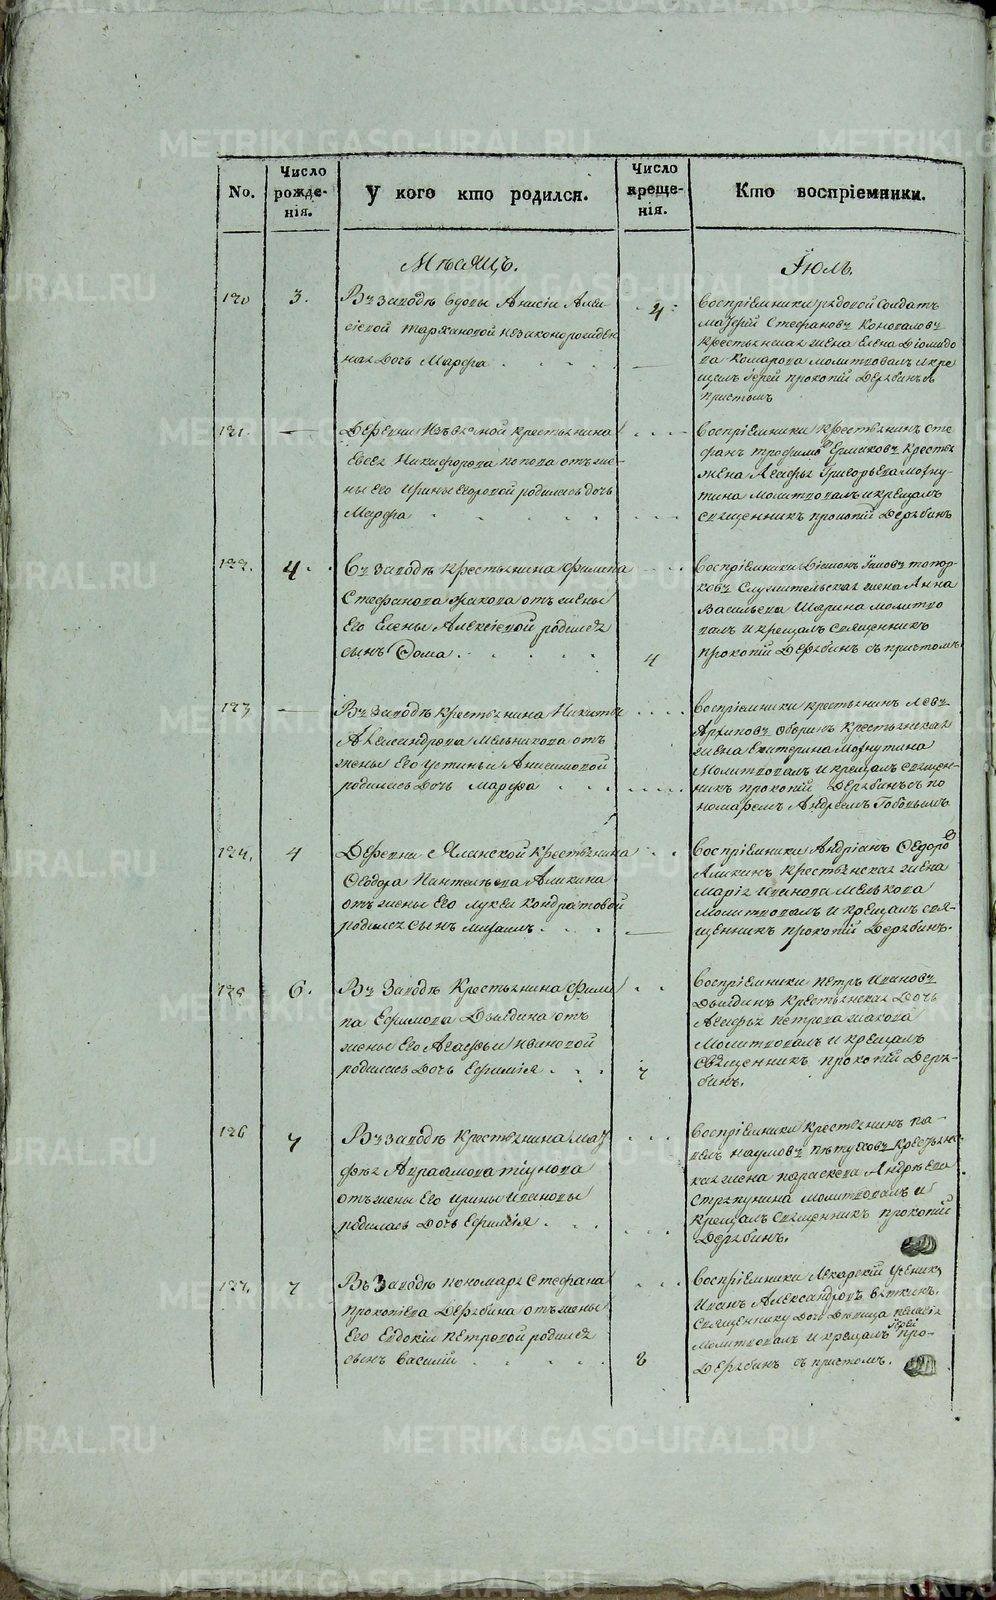 METRIKI.GASO-URAL.RU
No.
Число рожденія.
У кого кто родился.
Число крещенія.
Кто воспріемники.
Мѣсяцъ.
Іюль.
120
3.
Въ заводѣ вдовы Анисіи Алек
сіевой незаконнорожден
ная дочь Марфа
4
воспріемники рядовой солдатъ
Стефановъ Коноваловъ
крестьянская жена Елена Діомидо
ва Комарова молитвовалъ и кре
щалъ іерей прокопій Дерябинъ съ
причтомъ
121.
Деревни крестьянина
Евсея Никифорова попова отъ же-
ны его ирины Егоровой родилась дочь
Марфа
воспріемники крестьянинъ сте
фанъ трофимовъ Ермаковъ крестья
жена Агафья Григорьева махну-
тина молитвовалъ и крещалъ
священникъ прокопій Дерябинъ
122.
4
въ заводѣ крестьянина филипа
Стефанова жакова отъ жены
его Елены Алексіевой родился
сынъ Фома
4
воспріемники топор-
ковъ служительская жена Анна
Васильева Шарина молитво
валъ и крещалъ священникъ
прокопій Дерябинъ съ причтомъ
123
Въ заводѣ крестьянина Никиты
Александрова Мельникова отъ
жены его устиньи Анисимовой
родилась дочь марфа
воспріемники крестьянинъ Левъ
Архиповъ Оборинъ крестьянская
жена Екатерина Махнутина
Молитвовалъ и крещалъ священ-
никъ прокопій Дерябинъ съ по
номаремъ Андреемъ
124.
4
Деревни Яланской крестьянина
Феодора Пантелеева Аликина
отъ жены его лукеи кондратовой
родился сынъ михаилъ
воспріемники Андріанъ Федоро
Аликинъ крестьянская жена
марія иванова
молитвовалъ и крещалъ свя-
щенникъ прокопій Дерябинъ.
125
6.
Въ заводѣ крестьянина фили
па Ефимова Дылдина отъ
жены его Агафьи ивановой
родилась дочь Ефимія
7
воспріемники петръ ивановъ
Дылдинъ крестьянская дочь
Агафья петрова жакова
молитвовалъ и крещалъ
священникъ прокопій Деря-
бинъ.
126
7
Въ заводѣ крестьянина
Авраамова тіунова
отъ жены его ирины ивановы
родилась дочь Ефимія
воспріемники крестьянинъ па-
велъ наумовъ пѣтуховъ крестьянс-
кая жена параскева Андрѣева
Стряпунина молитвовалъ и
крещалъ священникъ прокопій
Дерябинъ.
127.
7
Въ заводѣ пономаря Стефана
прокопіева Дерябина отъ жены
его Евдокіи петровой родился
сынъ василій
8
воспріемники лекарскій ученикъ
иванъ Александровъ вяткинъ.
священнику дочь дѣвица пелагія
молитвовалъ и крещалъ іерей про-
Дерябинъ съ причтомъ.